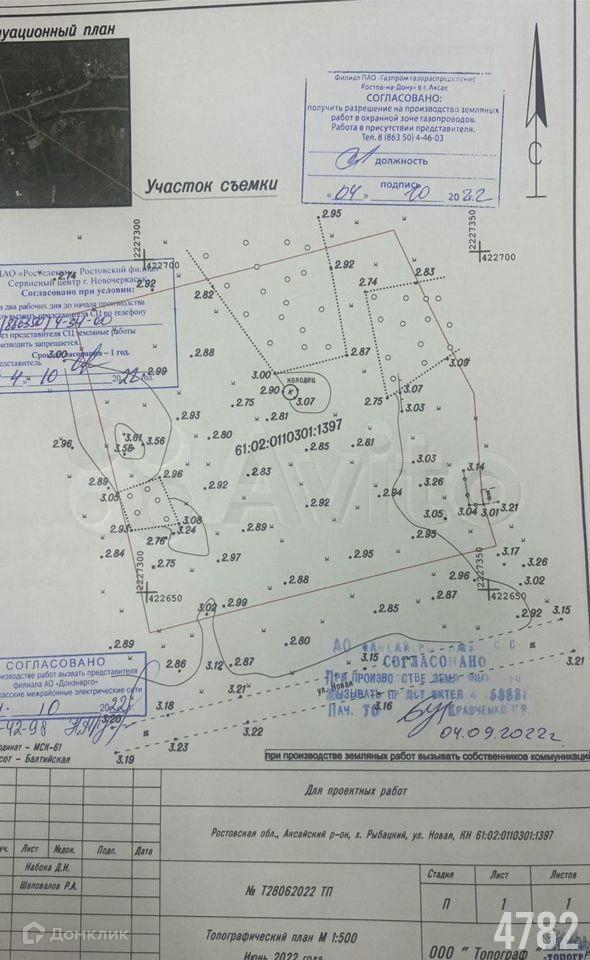 туационный план
Участок съемки
Филиал ПАО «Газпром газораспределение
Ростов-на-Дону» в г. Аксае
СОГЛАСОВАНО:
получить разрешение на производство земляных
работ в охранной зоне газопроводов.
Работа в присутствии представителя.
Тел. 8 (863 50) 4-46-03
должность
подпись
«04» 10 2022
С
2227300
422700
2227350
422700
ПАО «Ростелеком» Ростовский филиал
Сервисный центр г. Новочеркасск
Согласовано при условии:
за два рабочих дня до начала производства
представителя СЦ по телефону
(886350) 4-34-00
без представителя СЦ земляные работы
производить запрещается.
Срок согласования – 1 год.
представитель
4 10 2022 год.
2.95
2.92
2.74
2.92
2.82
2.74
2.83
3.00
2.99
2.88
2.87
3.09
3.00
колодец
2.90
К
3.07
2.75
3.07
3.03
2.93
2.75
2.81
61:02:0110301:1397
2.96
3.61
3.56
3.58
2.80
2.85
2.81
2.89
2.96
2.83
3.03
3.14
3.05
2.92
2.92
2.94
3.26
2.93
3.08
3.24
2.76
2.89
3.05
3.04
3.01
3.21
2.95
2.84
2.75
2.97
2.95
3.17
3.26
2227300
422650
2.88
2.96
2227350
422650
3.02
3.02
2.99
2.85
2.87
2.92
3.15
2.89
2.86
3.12
2.87
2.80
3.15
3.21
СОГЛАСОВАНО
производстве работ вызвать представителя
филиала АО «Донэнерго»
касские межрайонные электрические сети
10 2022г
-42-98
3.20
3.18
3.21
ул. Новая
3.16
3.22
3.23
3.19
СОГЛАСОВАНО
ПРИ ПРОИЗВОДСТВЕ ЗЕМЛ
ВЫЗЫВАТЬ ПРЕДСТАВИТЕЛ
КРАВЧЕНКО
04.09.2022г.
ординат – МСК-61
сот – Балтийская
при производстве земляных работ вызвать собственников коммуникаций
Для проектных работ
Ростовская обл., Аксайский р-он, х. Рыбацкий, ул. Новая, КН 61:02:0110301:1397
уч. Лист №док. Подп. Дата
Набока Д.И.
Шаповалов Р.А.
№ Т28062022 ТП
Стадия Лист Листов
П 1 1
Топографический план М 1:500
Июнь 2022 года
ООО "Топограф
Avito
Домклик
4782